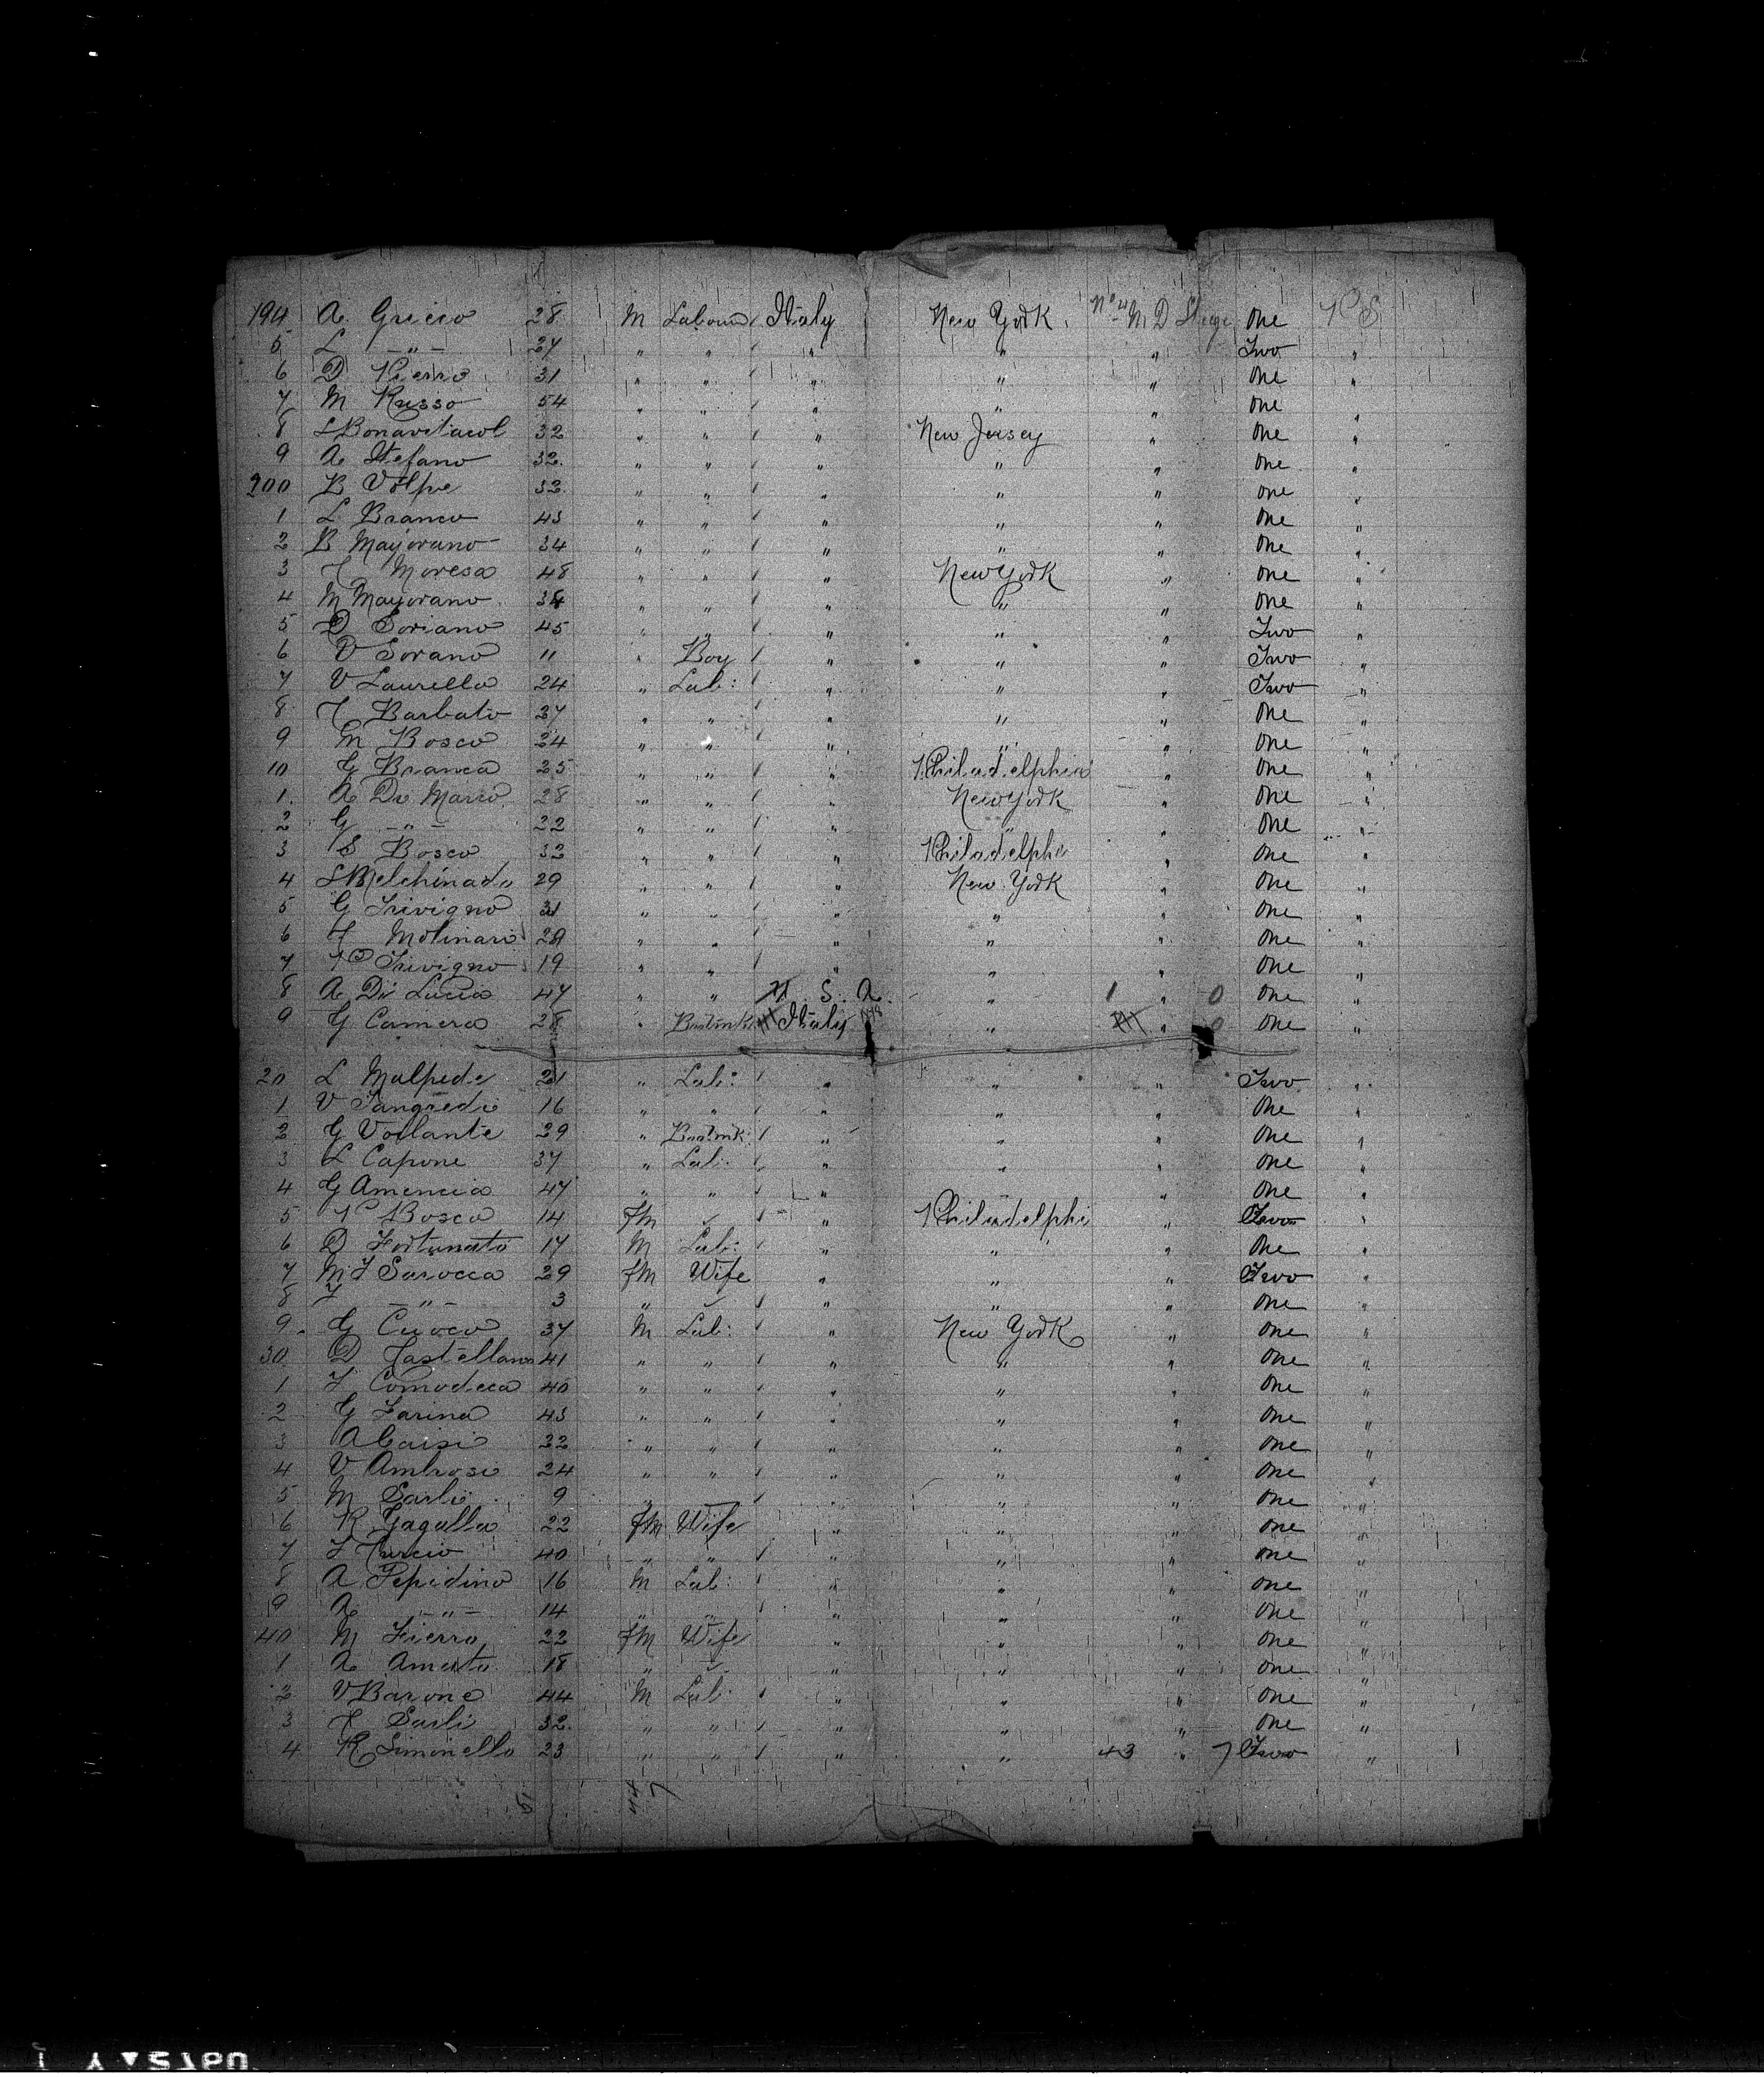 194 A Grieco 28 M Labourer Italy New York No 4 M D Steege One P S
5 L — " — 27 " " / " " " Two "
6 D Pierro 31 " " / " " " One "
7 M Russo 54 " " / " " " One "
8 L Bonavitacol 32 " " / " New Jersey " One "
9 A Stefano 32 " " / " " " One "
200 B Volpe 32 " " / " " " One "
1 L Branco 43 " " / " " " One "
2 B Mayorano 34 " " / " " " One "
3 Moresa 48 " " / " New York " One "
4 M Mayorano 34 " " / " " " One "
5 D Soriano 45 " " / " " " Two "
6 V Sorano 11 " Boy / " " " Two "
7 V Laurella 24 " Lab: / " " " Two "
8 Barbato 27 " " / " " " One "
9 M Bosco 24 " " / " " " One "
10 G Branca 25 " " / " Philadelphia " One "
1 A Di Marco 28 " " / " New York " One "
2 G — " — 22 " " / " " " One "
3 S Bosco 32 " " / " Philadelphi " One "
4 L Melchinado 29 " " / " New York " One "
5 G Trivigno 31 " " / " " " One "
6 Molinari 29 " " / " " " One "
7 P Trivigno 19 " " / " " " One "
8 A Di Lucia 47 " " U. S. A. " 1 " 0 One "
9 G Camera 28 " Italy " " 0 One "
20 L Malpede 21 " Lab: / " " " Two "
1 V Sangredi 16 " " / " " " One "
2 G Vollante 29 " / " " " One "
3 L Capone 37 " Lab: / " " " One "
4 G Amencia 47 " " / " " One "
5 P Bosco 14 fM / " Philadelphi " Two "
6 D Fortunato 17 M Lab: / " " " One "
7 M F Sarocca 29 fM Wife " " " Two "
8 — " — 3 " / " " " One "
9 G Cuoco 37 M Lab: / " New York " One "
30 D Castellano 41 " " / " " " One "
1 Comodeca 40 " " / " " " One "
2 G Farina 43 " " / " " " One "
3 A Caisi 32 " " / " " " One "
4 V Ambrosi 24 " " / " " " One "
5 M Sarli 9 " / " " " One "
6 R Gagulla 22 fM Wife " " " One "
7 Turcio 40 " " / " " " One "
8 A Pepedino 16 M Lab: / " " " One "
9 A — " — 14 " " / " " " One "
40 M Fierro 22 fM Wife " " " One "
1 A Amato 18 " " " " One "
2 V Barone 44 M Lab: " " " One "
3 Sarli 32 " " / " " " One "
4 R Simonello 23 " " / " " 43 " 7 Two "